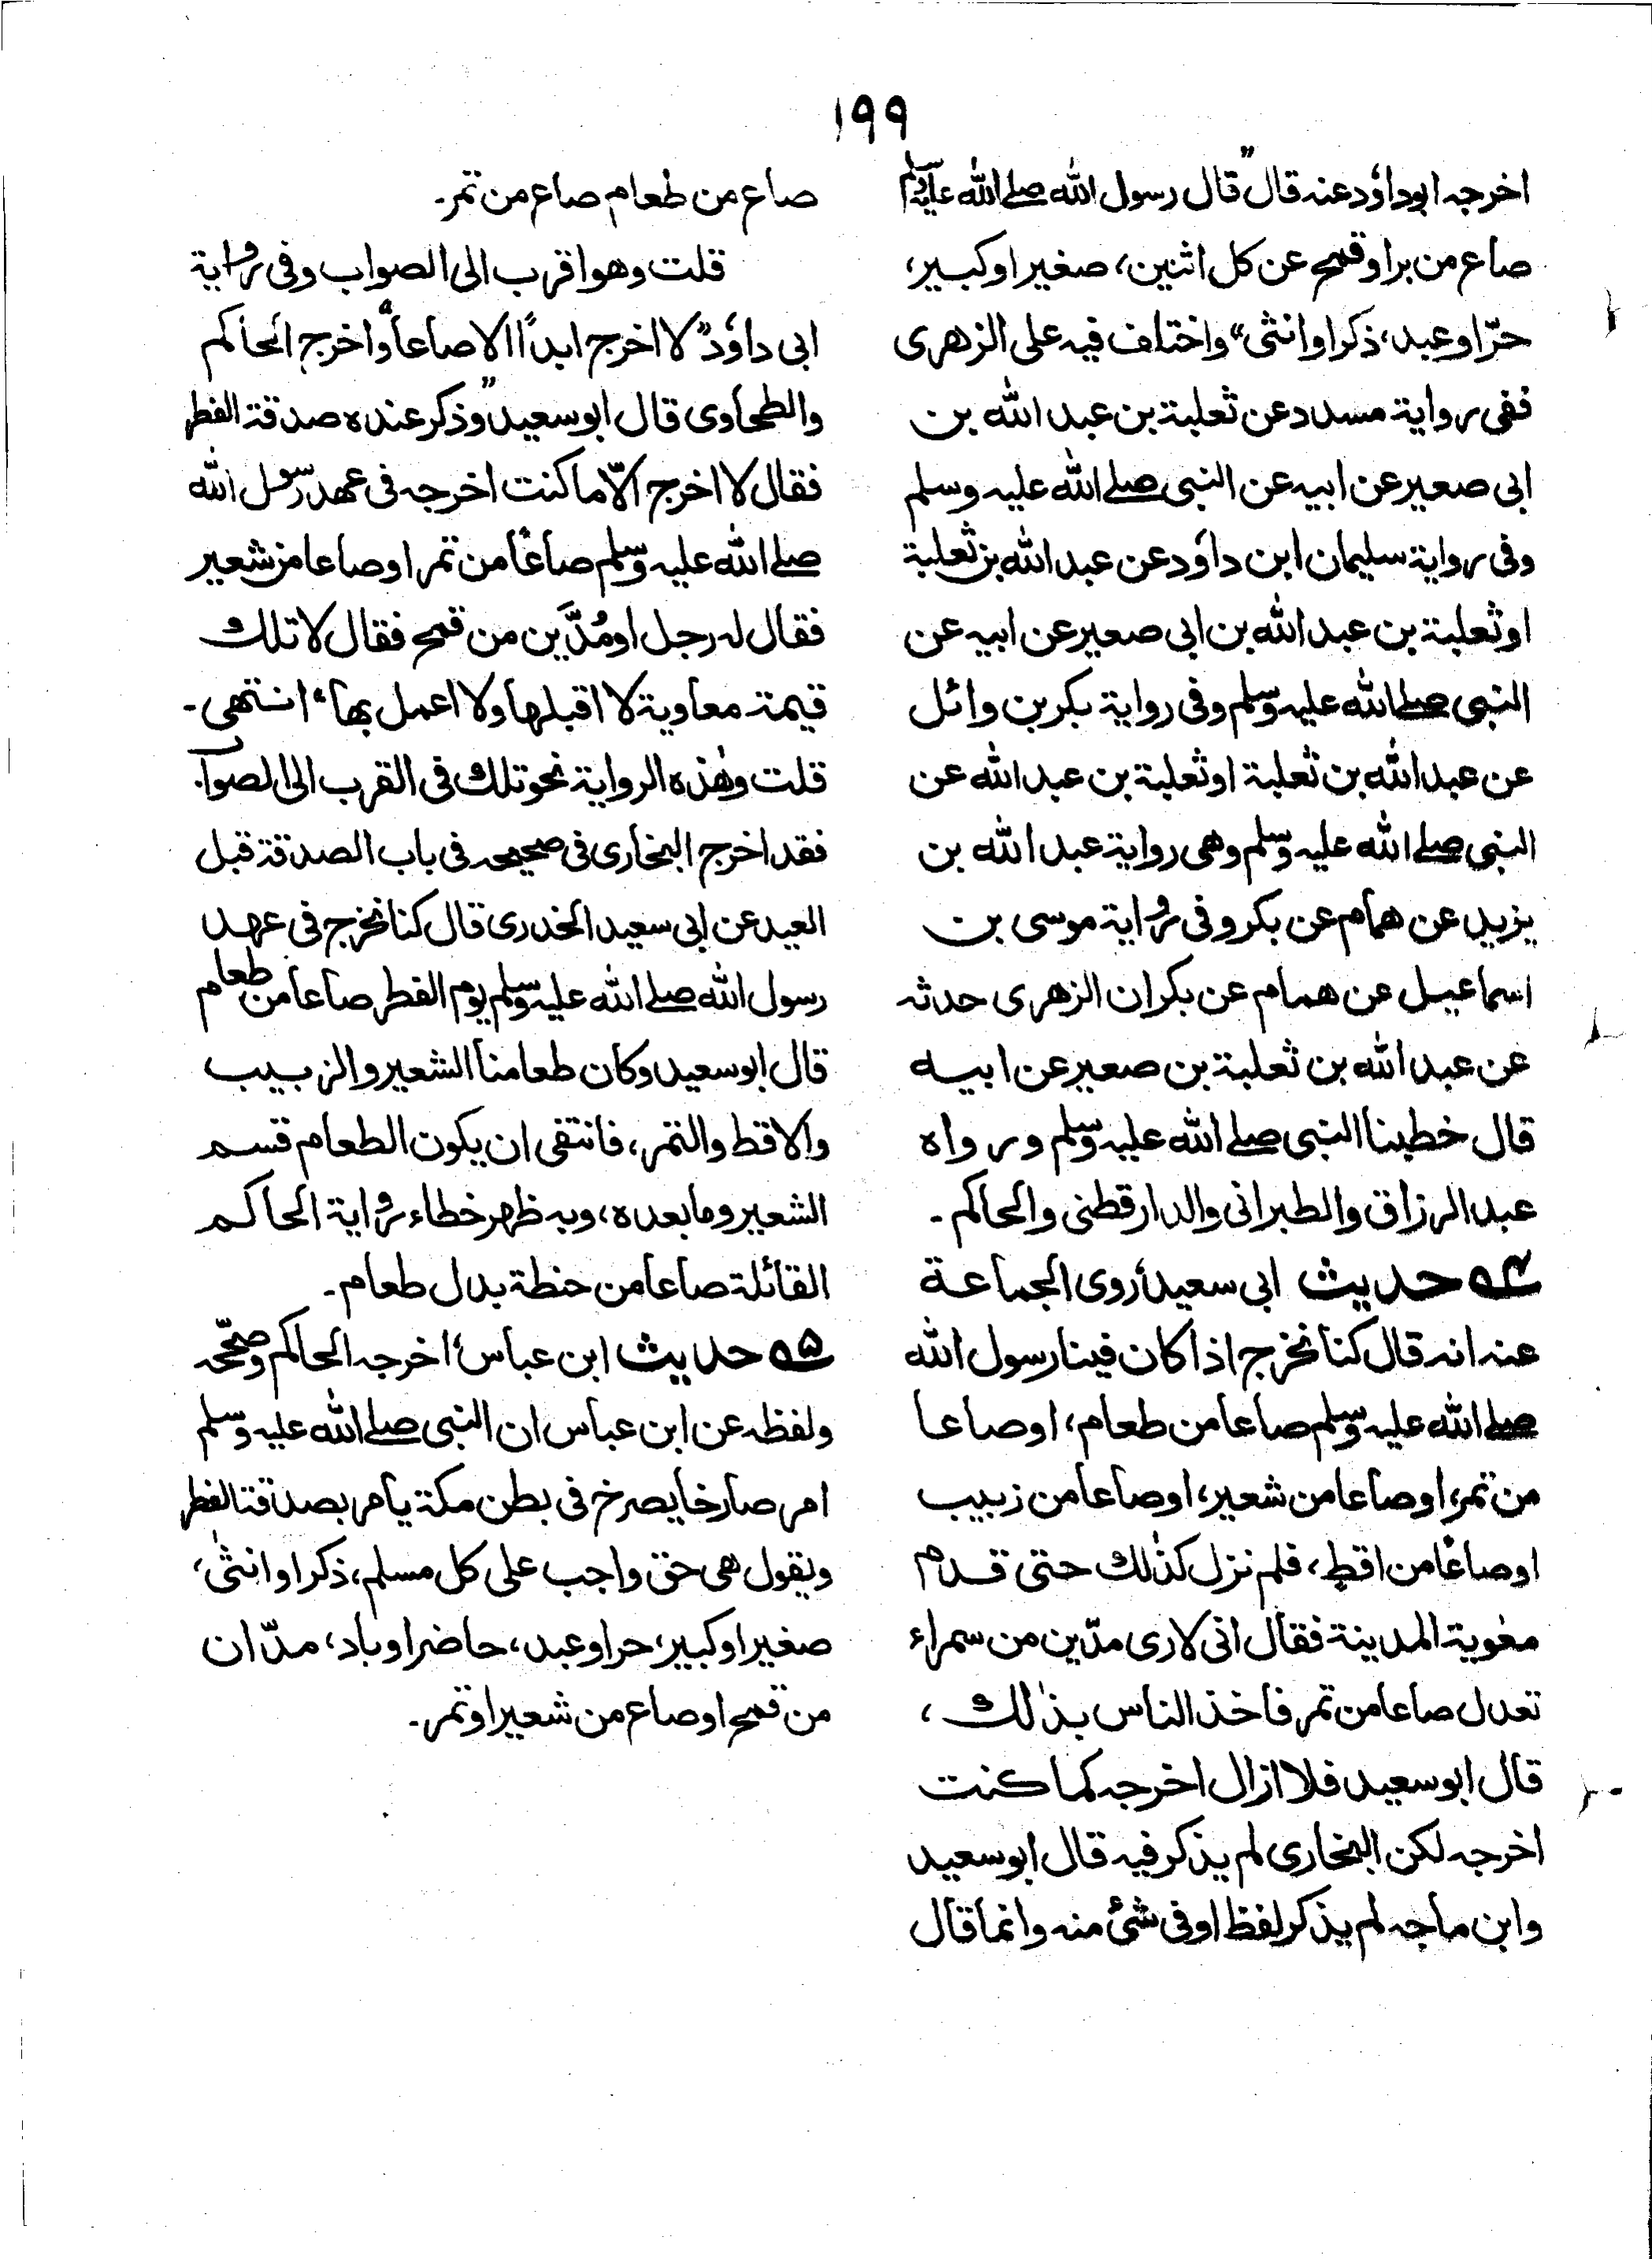 ١٩٩
اخرجہ ابوداؤد عنہ قال "قال رسول اللہ صلے اللہ علیہ وسلم
صاع من بر او قمح عن کل اثنین، صغیر او کبیر،
حرّ او عبد، ذکر او انثی" واختلف فیہ علی الزھری
ففی روایۃ مسدد عن ثعلبۃ بن عبد اللہ بن
ابی صعیر عن ابیہ عن النبی صلے اللہ علیہ وسلم
وفی روایۃ سلیمان ابن داؤد عن عبد اللہ بن ثعلبۃ
او ثعلبۃ بن عبد اللہ بن ابی صعیر عن ابیہ عن
النبی صلے اللہ علیہ وسلم وفی روایۃ بکر بن وائل
عن عبد اللہ بن ثعلبۃ او ثعلبۃ بن عبد اللہ عن
النبی صلے اللہ علیہ وسلم وھی روایۃ عبد اللہ بن
یزید عن ھمام عن بکر وفی روایۃ موسی بن
اسماعیل عن ھمام عن بکر ان الزھری حدثہ
عن عبد اللہ بن ثعلبۃ بن صعیر عن ابیہ
قال خطبنا النبی صلے اللہ علیہ وسلم ورواہ
عبد الرزاق والطبرانی والدارقطنی والحاکم۔
۵۴ حدیث ابی سعیدؓ روی الجماعۃ
عنہ انہ قال کنا نخرج اذا کان فینا رسول اللہ
صلے اللہ علیہ وسلم صاعا من طعام، او صاعا
من تمر، او صاعا من شعیر، او صاعا من زبیب
او صاعًا من اقطٍ، فلم نزل کذٰلک حتی قدم
معٰویۃ المدینۃ فقال انی لاری مدّین من سمراء
تعدل صاعا من تمر فاخذ الناس بذٰلک،
قال ابو سعید فلا ازال اخرجہ کما کنت
اخرجہ لکن البخاری لم یذکر فیہ قال ابو سعید
وابن ماجہ لم یذکر لفظ او فی شئ منہ وانما قال
صاع من طعام صاع من تمر۔
قلت وھو اقرب الی الصواب وفی روایۃ
ابی داؤد "لا اخرج ابدًا الا صاعا" واخرج الحاکم
والطحاوی قال ابو سعید "وذکر عندہ صدقۃ الفطر
فقال لا اخرج الّا ما کنت اخرجہ فی عھد رسول اللہ
صلے اللہ علیہ وسلم صاعًا من تمر او صاعا من شعیر
فقال لہ رجل او مُدَّین من قمح فقال لا تلک
قیمۃ معاویۃ لا اقبلھا ولا اعمل بھا" انتھی۔
قلت وھٰذہ الروایۃ نحو تلک فی القرب الی الصواب
فقد اخرج البخاری فی صحیحہ فی باب الصدقۃ قبل
العید عن ابی سعید الخدری قال کنا نخرج فی عھد
رسول اللہ صلے اللہ علیہ وسلم یوم الفطر صاعا من طعام
قال ابو سعید وکان طعامنا الشعیر والزبیب
والاقط والتمر، فانتفی ان یکون الطعام قسم
الشعیر وما بعدہ، وبہ ظھر خطاء روایۃ الحاکم
القائلۃ صاعا من حنطۃ بدل طعام۔
۵۵ حدیث ابن عباسؓ اخرجہ الحاکم وصحّحہ
ولفظہ عن ابن عباس ان النبی صلے اللہ علیہ وسلم
امر صارخا یصرخ فی بطن مکۃ یامر بصدقۃ الفطر
ویقول ھی حق واجب علی کل مسلم، ذکر او انثیٰ،
صغیر او کبیر، حر او عبد، حاضر او باد، مدّان
من قمح او صاع من شعیر او تمر۔